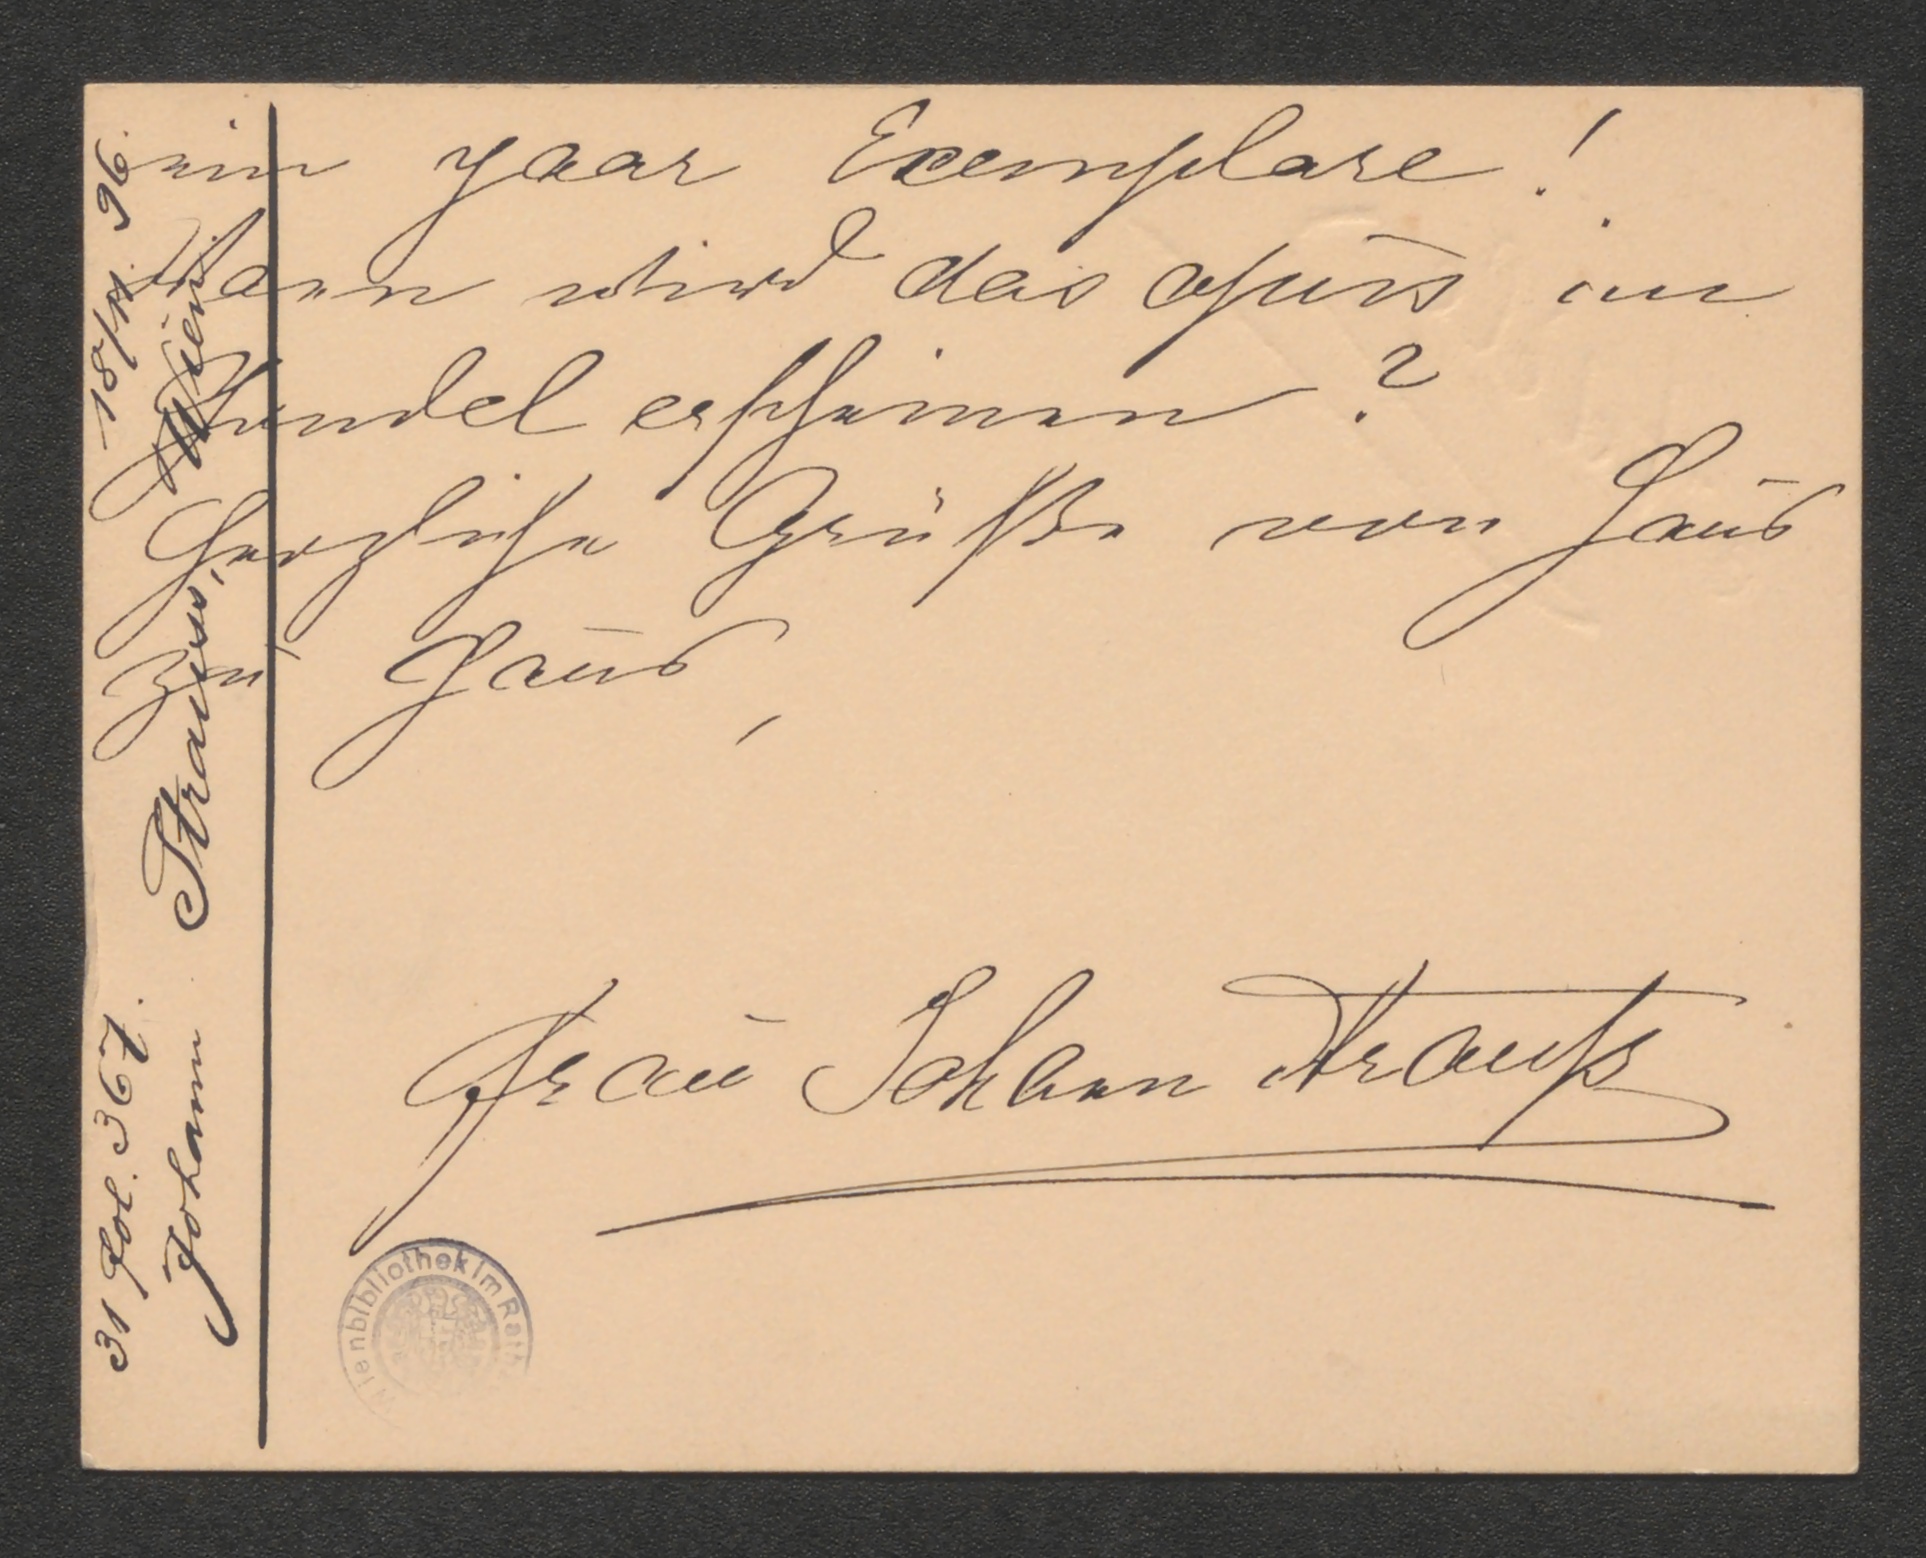 ein paar Exemplare!
Wann wird das opus im
Handel erscheinen?
Herzliche Grüße von Haus
zu Haus,
Frau Johann Strauß
31 fol. 367. 18/XI. 96.
Johann Strauss, Wien
Wienbibliothek im Rath